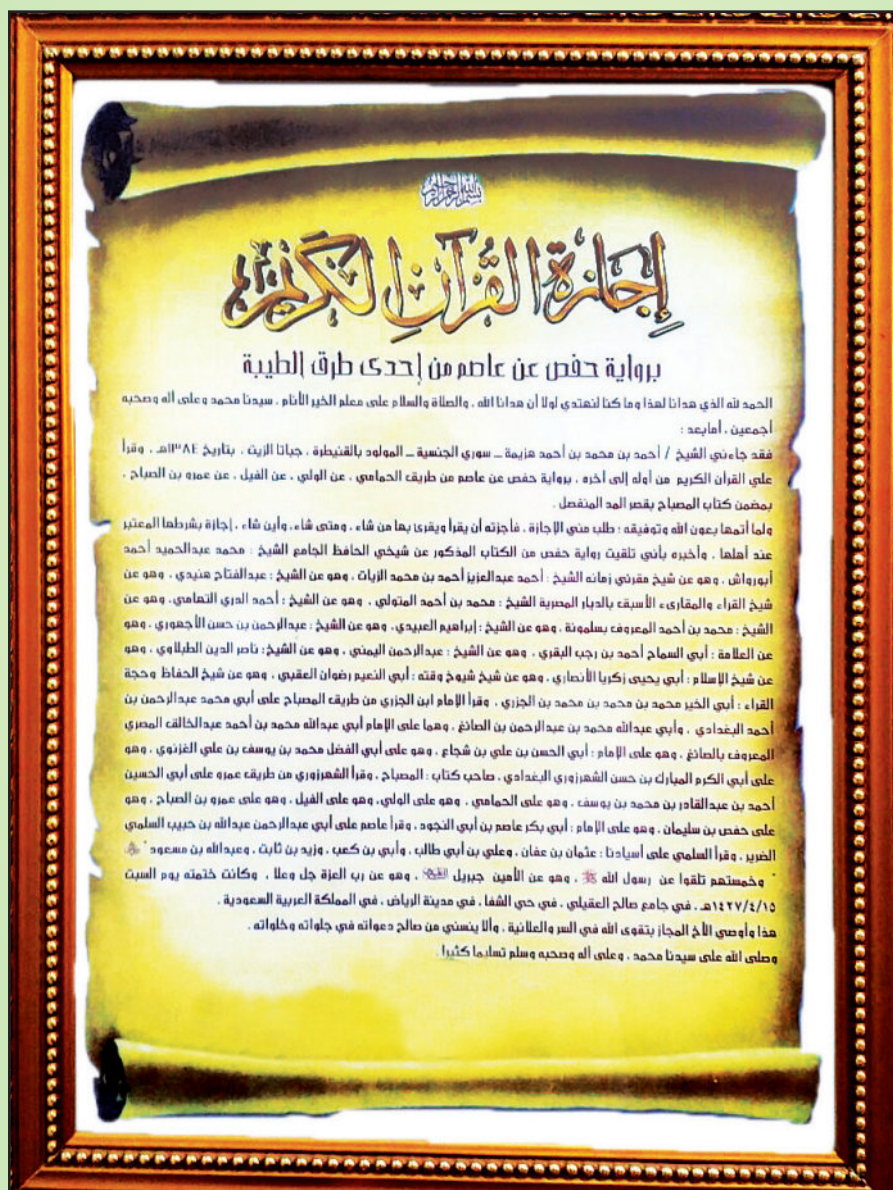 بسم الله الرحمن الرحيم
إجازة القرآن الكريم
برواية حفص عن عاصم من إحدى طرق الطيبة
الحمد لله الذي هدانا لهذا وما كنا لنهتدي لولا أن هدانا الله ، والصلاة والسلام على معلم الخير الأنام ، سيدنا محمد وعلى آله وصحبه
أجمعين ، أما بعد :
فقد جاءني الشيخ / أحمد بن محمد بن أحمد هزيمة _ سوري الجنسية _ المولود بالقنيطرة ، جباتا الزيت ، بتاريخ ١٣٨٤هـ ، وقرأ
علي القرآن الكريم من أوله إلى آخره ، برواية حفص عن عاصم من طريق الحمامي ، عن الولي ، عن الفيل ، عن عمرو بن الصباح ،
بمضمن كتاب المصباح بقصر المد المنفصل .
ولما أتمها بعون الله وتوفيقه : طلب مني الإجازة ، فأجزته أن يقرأ ويقرئ بها من شاء ، ومتى شاء ، وأين شاء ، إجازة بشرطها المعتبر
عند أهلها ، وأخبره بأني تلقيت رواية حفص من الكتاب المذكور عن شيخي الحافظ الجامع الشيخ : محمد عبدالحميد أحمد
أبورواش ، وهو عن شيخ مقرئي زمانه الشيخ : أحمد عبدالعزيز أحمد بن محمد الزيات ، وهو عن الشيخ : عبدالفتاح هنيدي ، وهو عن
شيخ القراء والمقارىء الأسبق بالديار المصرية الشيخ : محمد بن أحمد المتولي ، وهو عن الشيخ : أحمد الدري التهامي ، وهو عن
الشيخ : محمد بن أحمد المعروف بسلمونة ، وهو عن الشيخ : إبراهيم العبيدي ، وهو عن الشيخ : عبدالرحمن بن حسن الأجهوري ، وهو
عن العلامة : أبي السماح أحمد بن رجب البقري ، وهو عن الشيخ : عبدالرحمن اليمني ، وهو عن الشيخ : ناصر الدين الطبلاوي ، وهو
عن شيخ الإسلام : أبي يحيى زكريا الأنصاري ، وهو عن شيخ شيوخ وقته : أبي النعيم رضوان العقبي ، وهو عن شيخ الحفاظ وحجة
القراء : أبي الخير محمد بن محمد بن محمد بن الجزري ، وقرأ الإمام ابن الجزري من طريق المصباح على أبي محمد عبدالرحمن بن
أحمد البغدادي ، وأبي عبدالله محمد بن عبدالرحمن بن الصائغ ، وهما على الإمام أبي عبدالله محمد بن أحمد عبدالخالق المصري
المعروف بالصائغ ، وهو على الإمام : أبي الحسن بن علي بن شجاع ، وهو على أبي الفضل محمد بن يوسف بن علي الغزنوي ، وهو
على أبي الكرم المبارك بن حسن الشهرزوري البغدادي ، صاحب كتاب : المصباح ، وقرأ الشهرزوري من طريق عمرو على أبي الحسين
أحمد بن عبدالقادر بن محمد بن يوسف ، وهو على الحمامي ، وهو على الولي ، وهو على الفيل ، وهو على عمرو بن الصباح ، وهو
على حفص بن سليمان ، وهو على الإمام : أبي بكر عاصم بن أبي النجود ، وقرأ عاصم على أبي عبدالرحمن عبدالله بن حبيب السلمي
الضرير ، وقرأ السلمي على أسيادنا : عثمان بن عفان ، وعلي بن أبي طالب ، وأبي بن كعب ، وزيد بن ثابت ، وعبدالله بن مسعود
وخمستهم تلقوا عن رسول الله ﷺ ، وهو عن الأمين جبريل ، وهو عن رب العزة جل وعلا ، وكانت ختمته يوم السبت
١٤٢٧/٤/١٥هـ ، في جامع صالح العقيلي ، في حي الشفا ، في مدينة الرياض ، في المملكة العربية السعودية .
هذا وأوصي الأخ المجاز بتقوى الله في السر والعلانية ، وألا ينسني من صالح دعواته في جلواته وخلواته .
وصلى الله على سيدنا محمد ، وعلى آله وصحبه وسلم تسليما كثيرا .